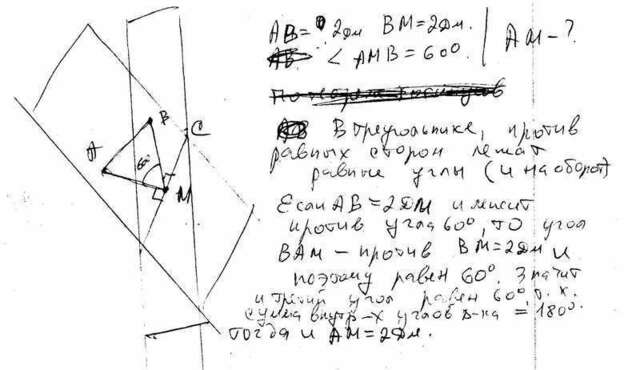 AB= 2дм BM=2дм.
∠ AMB = 60°. AM-?
В треугольнике, против
равных сторон лежат
равные углы (и наоборот)
Если AB=2дм и лежит
против угла 60°, то угол
BAM - против BM=2дм и
поэтому равен 60°. Значит
и третий угол равен 60°, т.к.
сумма внутр-х углов Δ-ка = 180°.
Тогда и AM=2дм.
A
B
C
60°
M